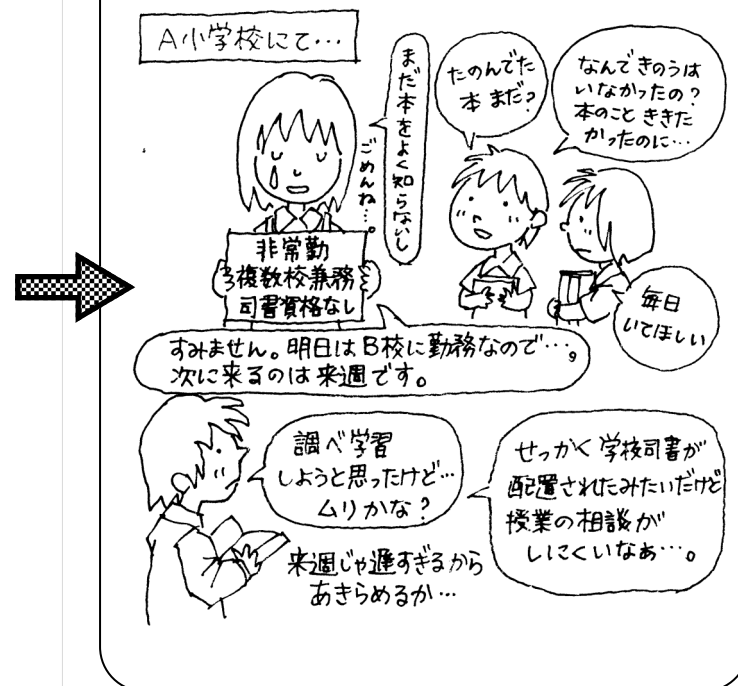 A小学校にて…
まだ本をよく知らないし
ごめんね…。
たのんでた
本 まだ?
なんで きのうは
いなかったの?
本のこと ききた
かったのに…
非常勤
複数校兼務
司書資格なし
毎日
いてほしい
すみません。明日はB校に勤務なので…。
次に来るのは来週です。
調べ学習
しようと思ったけど…
ムリかな?
来週じゃ遅すぎるから
あきらめるか…
せっかく学校司書が
配置されたみたいだけど
授業の相談が
しにくいなぁ…。